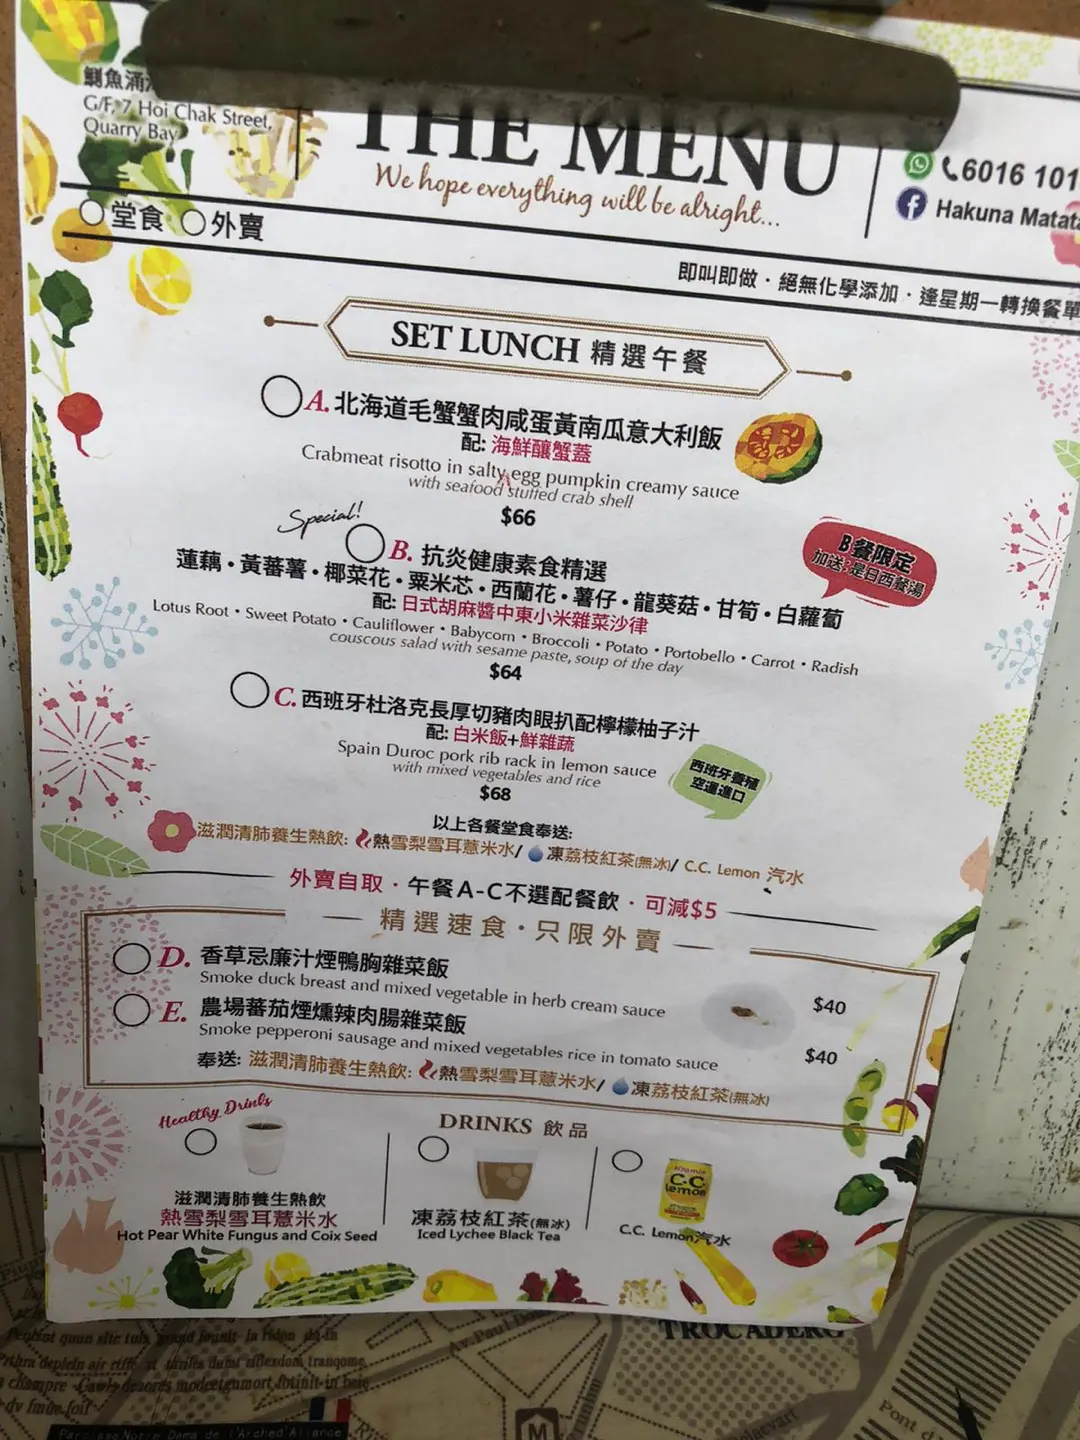 鰂魚涌
G/F, 7 Hoi Chak Street,
Quarry Bay
THE MENU
We hope everything will be alright...
6016 101
Hakuna Matata
堂食 外賣
即叫即做 · 絕無化學添加 · 逢星期一轉換餐單
SET LUNCH 精選午餐
A. 北海道毛蟹蟹肉咸蛋黃南瓜意大利飯
配: 海鮮釀蟹蓋
Crabmeat risotto in salty egg pumpkin creamy sauce
with seafood stuffed crab shell
$66
Special!
B. 抗炎健康素食精選
B餐限定
加送:是日西餐湯
蓮藕 • 黃蕃薯 • 椰菜花 • 粟米芯 • 西蘭花 • 薯仔 • 龍葵菇 • 甘筍 • 白蘿蔔
配: 日式胡麻醬中東小米雜菜沙律
Lotus Root • Sweet Potato • Cauliflower • Babycorn • Broccoli • Potato • Portobello • Carrot • Radish
couscous salad with sesame paste, soup of the day
$64
C. 西班牙杜洛克長厚切豬肉眼扒配檸檬柚子汁
配: 白米飯+鮮雜蔬
Spain Duroc pork rib rack in lemon sauce
with mixed vegetables and rice
$68
西班牙養殖
空運進口
以上各餐堂食奉送:
滋潤清肺養生熱飲: 熱雪梨雪耳薏米水/ 凍荔枝紅茶(無冰)/ C.C. Lemon 汽水
外賣自取 · 午餐A-C不選配餐飲 · 可減$5
精選速食 · 只限外賣
D. 香草忌廉汁煙鴨胸雜菜飯
Smoke duck breast and mixed vegetable in herb cream sauce
$40
E. 農場蕃茄煙燻辣肉腸雜菜飯
Smoke pepperoni sausage and mixed vegetables rice in tomato sauce
$40
奉送: 滋潤清肺養生熱飲: 熱雪梨雪耳薏米水/ 凍荔枝紅茶(無冰)
Healthy Drinks
DRINKS 飲品
C.C.
Lemon
滋潤清肺養生熱飲
熱雪梨雪耳薏米水
Hot Pear White Fungus and Coix Seed
凍荔枝紅茶(無冰)
Iced Lychee Black Tea
C.C. Lemon汽水
TROCADERO
Av. Paul
M
Pont d
Paroisse Notre Dame de l'Arched Aliance